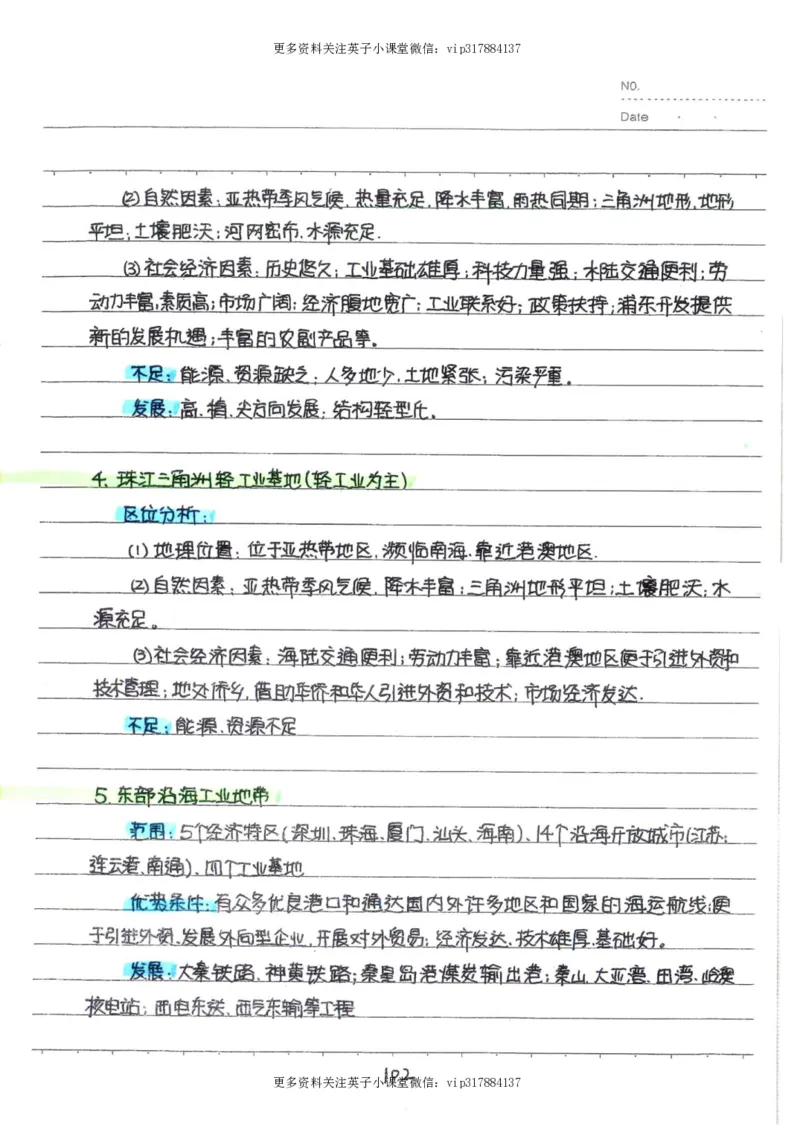 更多资料关注英子小课堂微信：vip317884137
NO.
Date
(2)自然因素：亚热带季风气候，热量充足，降水丰富，雨热同期；三角洲地形，地形
平坦；土壤肥沃；河网密布、水源充足.
(3)社会经济因素：历史悠久；工业基础雄厚；科技力量强；水陆交通便利；劳
动力丰富，素质高；市场广阔；经济腹地宽广；工业联系好；政策扶持；浦东开发提供
新的发展机遇；丰富的农副产品等。
不足：能源、资源缺乏；人多地少，土地紧张；污染严重。
发展：高、精、尖方向发展；结构轻型化。
4. 珠江三角洲轻工业基地(轻工业为主)
区位分析：
(1)地理位置：位于亚热带地区，濒临南海，靠近港澳地区.
(2)自然因素：亚热带季风气候，降水丰富；三角洲地形平坦；土壤肥沃；水
源充足。
(3)社会经济因素：海陆交通便利；劳动力丰富；靠近港澳地区便于引进外资和
技术管理；地处侨乡，借助华侨和华人引进外资和技术；市场经济发达.
不足：能源、资源不足
5. 东部沿海工业地带
范围：5个经济特区(深圳、珠海、厦门、汕头、海南)、14个沿海开放城市(江苏：
连云港、南通)、四个工业基地
优势条件：有众多优良港口和通达国内外许多地区和国家的海运航线；便
于引进外资、发展外向型企业，开展对外贸易；经济发达、技术雄厚、基础好。
发展：大秦铁路、神黄铁路；秦皇岛港煤炭输出港；秦山、大亚湾、田湾、岭澳
核电站；西电东送、西气东输等工程
102
更多资料关注英子小课堂微信：vip317884137